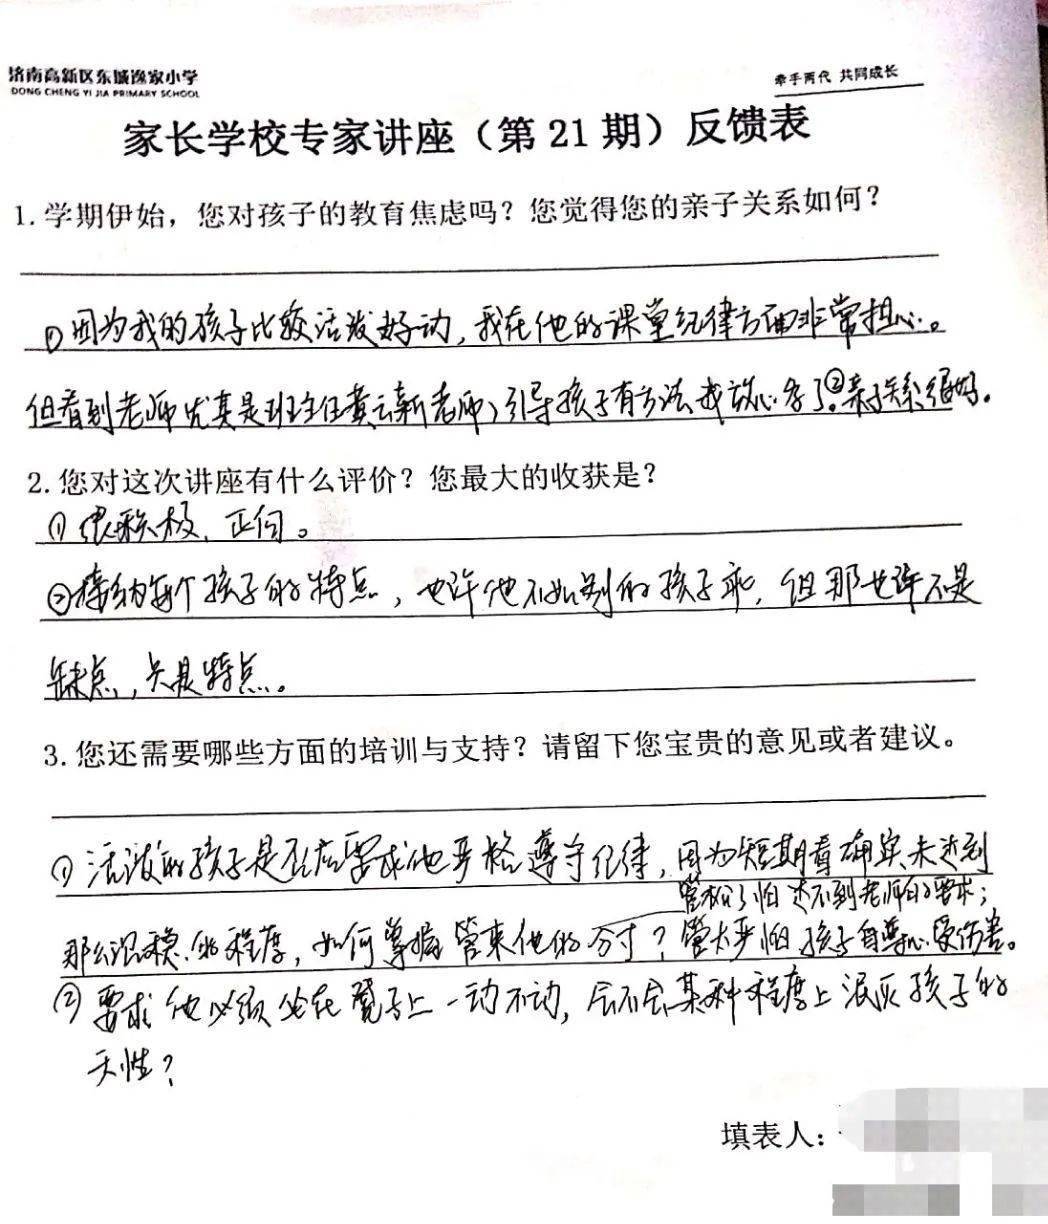 济南高新区东城逸家小学
DONG CHENG YI JIA PRIMARY SCHOOL
牵手两代 共同成长
家长学校专家讲座（第 21 期）反馈表
1. 学期伊始，您对孩子的教育焦虑吗？您觉得您的亲子关系如何？
①因为我的孩子比较活泼好动，我在他的课堂纪律方面非常担心。
但看到老师（尤其是班主任黄云新老师）引导孩子有方法我放心多了。②亲子关系很好。
2. 您对这次讲座有什么评价？您最大的收获是？
①很积极、正向。
②接纳每个孩子的特点，也许他不如别的孩子乖，但那也许不是
缺点，只是特点。
3. 您还需要哪些方面的培训与支持？请留下您宝贵的意见或者建议。
①活泼的孩子是否应要求他严格遵守纪律，因为短期看确实未达到
管松了怕达不到老师的要求；
那么沉稳的程度，如何掌握管束他的分寸？管太严怕孩子自尊心受伤害。
②要求他必须坐在凳子上一动不动，会不会某种程度上泯灭孩子的
天性？
填表人：